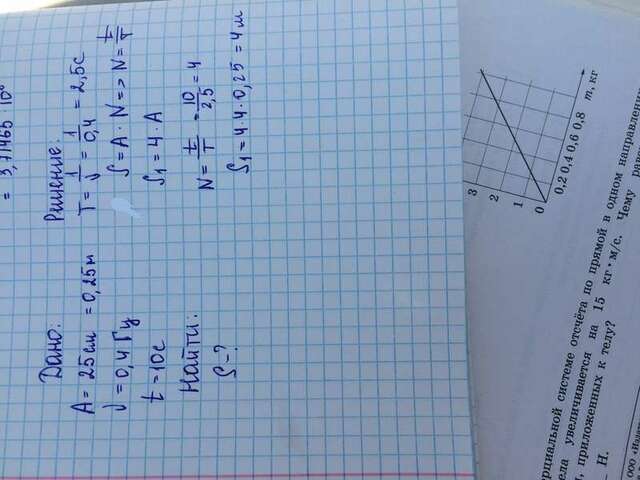 = 3,71465 · 10⁶
Дано:
A = 25 см = 0,25 м
ν = 0,4 Гц
t = 10 с
Найти:
S - ?
Решение:
T = 1/ν = 1/0,4 = 2,5 с
S = A · N => N = t/T
S₁ = 4 · A
N = t/T = 10/2,5 = 4
S₁ = 4 · 4 · 0,25 = 4 м
3
2
1
0
0,2 0,4 0,6 0,8 m, кг
ерциальной системе отсчёта по прямой в одном направлени
ела увеличивается на 15 кг · м/с. Чему
, приложенных к телу?
Н.
ООО «Издат